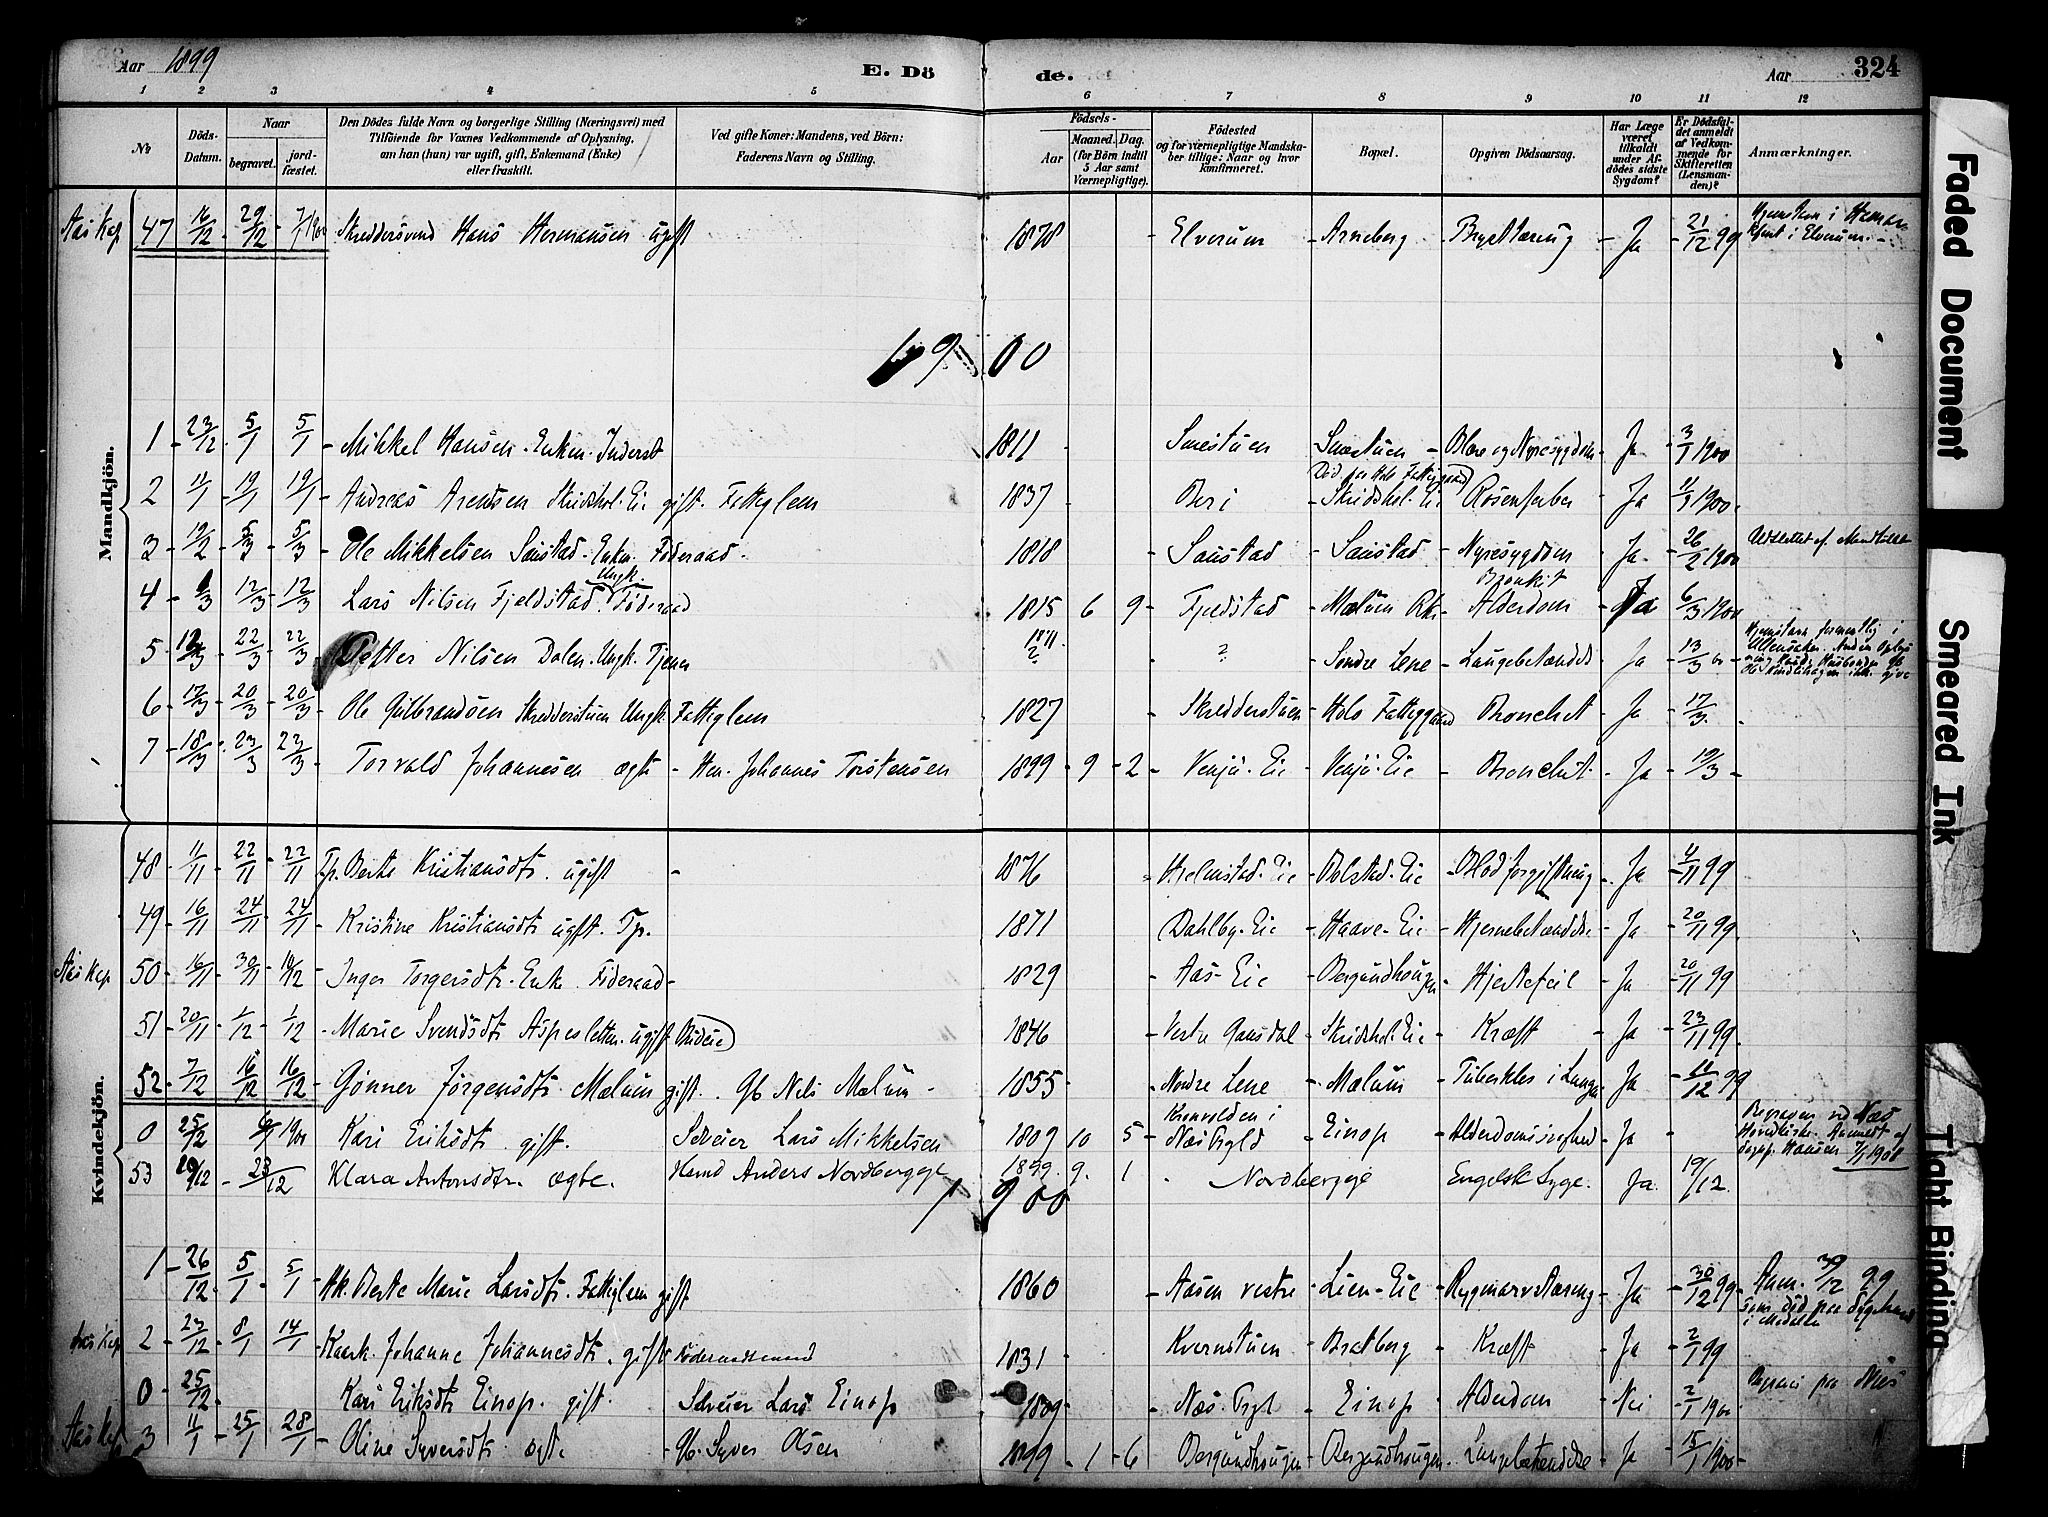 Aar 1899
E. Dö de.
Aar 324
1 2 3 4 5 6 7 8 9 10 11 12
No
Döds-Datum.
Naar begravet. jordfæstet.
Den Dödes fulde Navn og borgerlige Stilling (Næringsvei) med Tilföiende for Voxnes Vedkommende af Oplysning, om han (hun) var ugift, gift, Enkemand (Enke) eller fraskilt.
Ved gifte Koner: Mandens, ved Börn: Faderens Navn og Stilling.
Födsels-
Aar Maaned. Dag. (for Börn indtil 5 Aar samt Værnepligtige).
Födested og for værnepligtige Mandskaber tillige: Naar og hvor konfirmeret.
Bopæl.
Opgiven Dödsaarsag.
Har Læge været tilkaldt under Afdödes sidste Sygdom?
Er Dödsfaldet anmeldt af Vedkommende for Skifteretten (Lensmanden)?
Anmærkninger.
Mandkjön.
Aas Kap 47 16/12 29/12 7/1 1900 Skreddersvend Hans Hermansen ugift 1878 - Elverum - Arneberg - Brysttæring - Ja - 21/12 99
1900
1 - 23/12 - 5/1 5/1 - Mikkel Hansen. Enkem. Inderst 1811 Smestuen - Smestuen - Blære og Nyresygdom - Ja - 3/1 1900
2 11/1 19/1 19/1 - Andreas Arentsen Skridshol. Eie gift. Fattiglem 1837 - Biri - Skridshol. Eie Rosenfeber - Ja - 11/1 1900
Död paa Hols Fattiggaard
3 - 19/2 - 5/3 - 5/3 - Ole Mikkelsen Saustad. Enkm. Föderaad. 1818 - Saustad - Saustad - Nyresygdom - Ja - 26/2 1900
4 - 6/3 12/3 - 12/3 - Lars Nilsen Fjeldstad Ungk. Föderaad 1815 6 9 - Fjeldstad - Mælum - Bronkit Alderdom - Ja - 6/3 1900
5 - 12/3 - 22/3 - 22/3 Petter Nilsen Dalen. Ungk. Tjener 1871 ? - ? - Söndre Lene - Lungebetændelse - Ja - 13/3
6 - 17/3 - 20/3 - 20/3 - Ole Gulbrandsen Skredderstuen Ungk. Fattiglem 1827 - Skredderstuen - Hols Fattiggaard Bronchit - Ja - 17/3
7 - 18/3 - 23/3 23/3 - Torvald Johannesen ægte - Hm. Johannes Torstensen 1899 - 9 - 2 - Venjü. Eie - Venjü. Eie - Bronchit. - Ja - 19/3 -
Kvindekjön.
48 - 11/11 - 22/11 - 22/11 Tp. Berte Kristiansdtr. ugift - 1876 - Hjelmstad. Eie - Bolstad. Eie - Blodforgiftning - Ja - 11/11 99
49 - 16/11 - 24/11 - 24/11 - Kristine Kristiansdtr ugift. Tp. 1871 - Dahlby. Eie - Haave. Eie - Hjernebetændelse - Ja - 20/11 99
Aas Kap 50 - 16/11 - 30/11 - Inger Torgersdtr. Enke Föderaad - 1829 - Aas - Eie - Bergundhougen - Hjertefeil - Ja - 20/11 99
51 - 20/11 - 1/12 - 1/12 - Marie Svendsdtr Aspesletten. ugift Budeie 1846 - Vestre Gausdal - Skridshol. Eie - Kræft - Ja - 23/11 99
52 - 7/12 16/12 16/12 - Gönner Jörgensdtr. Mælum gift. Gb Nils Mælum - 1855 - Nordre Lene - Mælum - Tuberkler i Lungen - Ja - 11/12 99
0 25/12 1900 Kari Eriksdtr gift. Selveier Lars Mikkelsen 1809 10 5 - Næs Pgld - Einop - Alderdomssvaghed - Ja -
53 19/12 - 23/12 Klara Antonsdtr. ægte. Hmd Anders Nordbergeje 1899 9. 1 Nordbergeje Engelsk Syge. Ja. 19/12.
1900
1 - 26/12 - 5/1 - 5/1 - Hk. Berte Marie Larsdtr. Fattiglem gift 1860 - Aasen vestre - Lien - Eie - Rygmarvstæring - Ja - 30/12 99
Aas Kap 2 - 23/12 - 8/1 14/1 - Kaark. Johanne Johannesdtr. gift Föderaadsmand 1831 - Kvernstuen - Bratberg - Kræft - Ja - 2/1 99
0 - 25/12 Kari Eriksdtr Einop. gift. Selveier Lars Einop 1809 - Næs. Pgl - Einop - Alderdom - Nei - 2/1 1900 Begravet paa Næs
Aas Kap 3 - 11/1 - 25/1 28/1 - Oline Syversdtr ægte. - Gb. Syver Olsen 1899 - 1 - 6 Bergundhougen - Bergundhougen. Lungebetændelse - Ja - 15/1 1900 -
Faded Document
Smeared Ink
Tight Binding